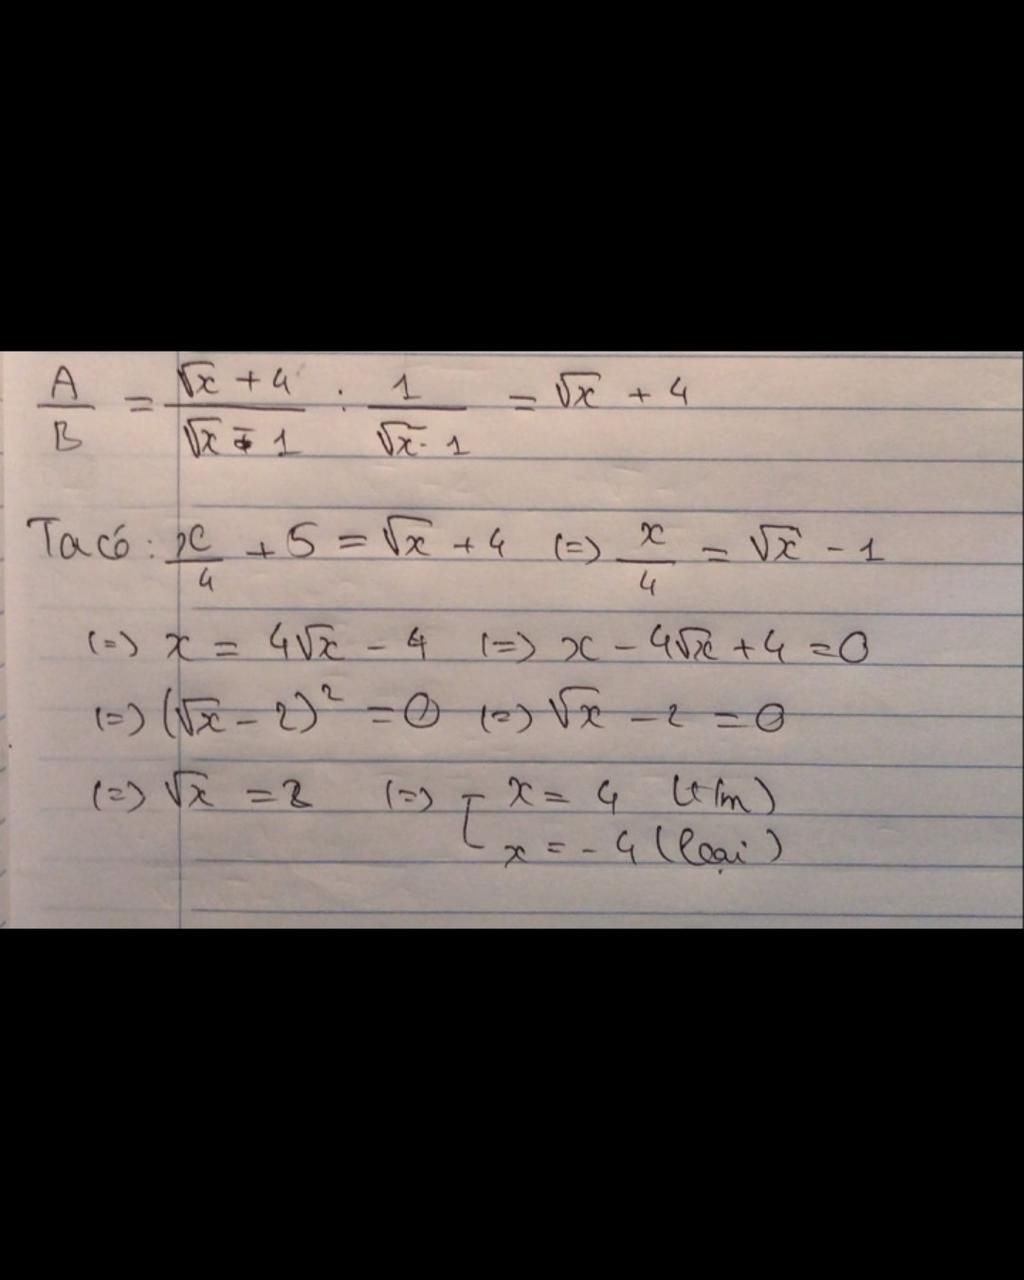 A/B = (√x + 4)/(√x - 1) : 1/(√x - 1) = √x + 4
Ta có: x/4 + 5 = √x + 4 (=) x/4 = √x - 1
(=) x = 4√x - 4 (=) x - 4√x + 4 = 0
(=) (√x - 2)² = 0 (=) √x - 2 = 0
(=) √x = 2 (=) [ x = 4 (t/m)
x = -4 (loại)